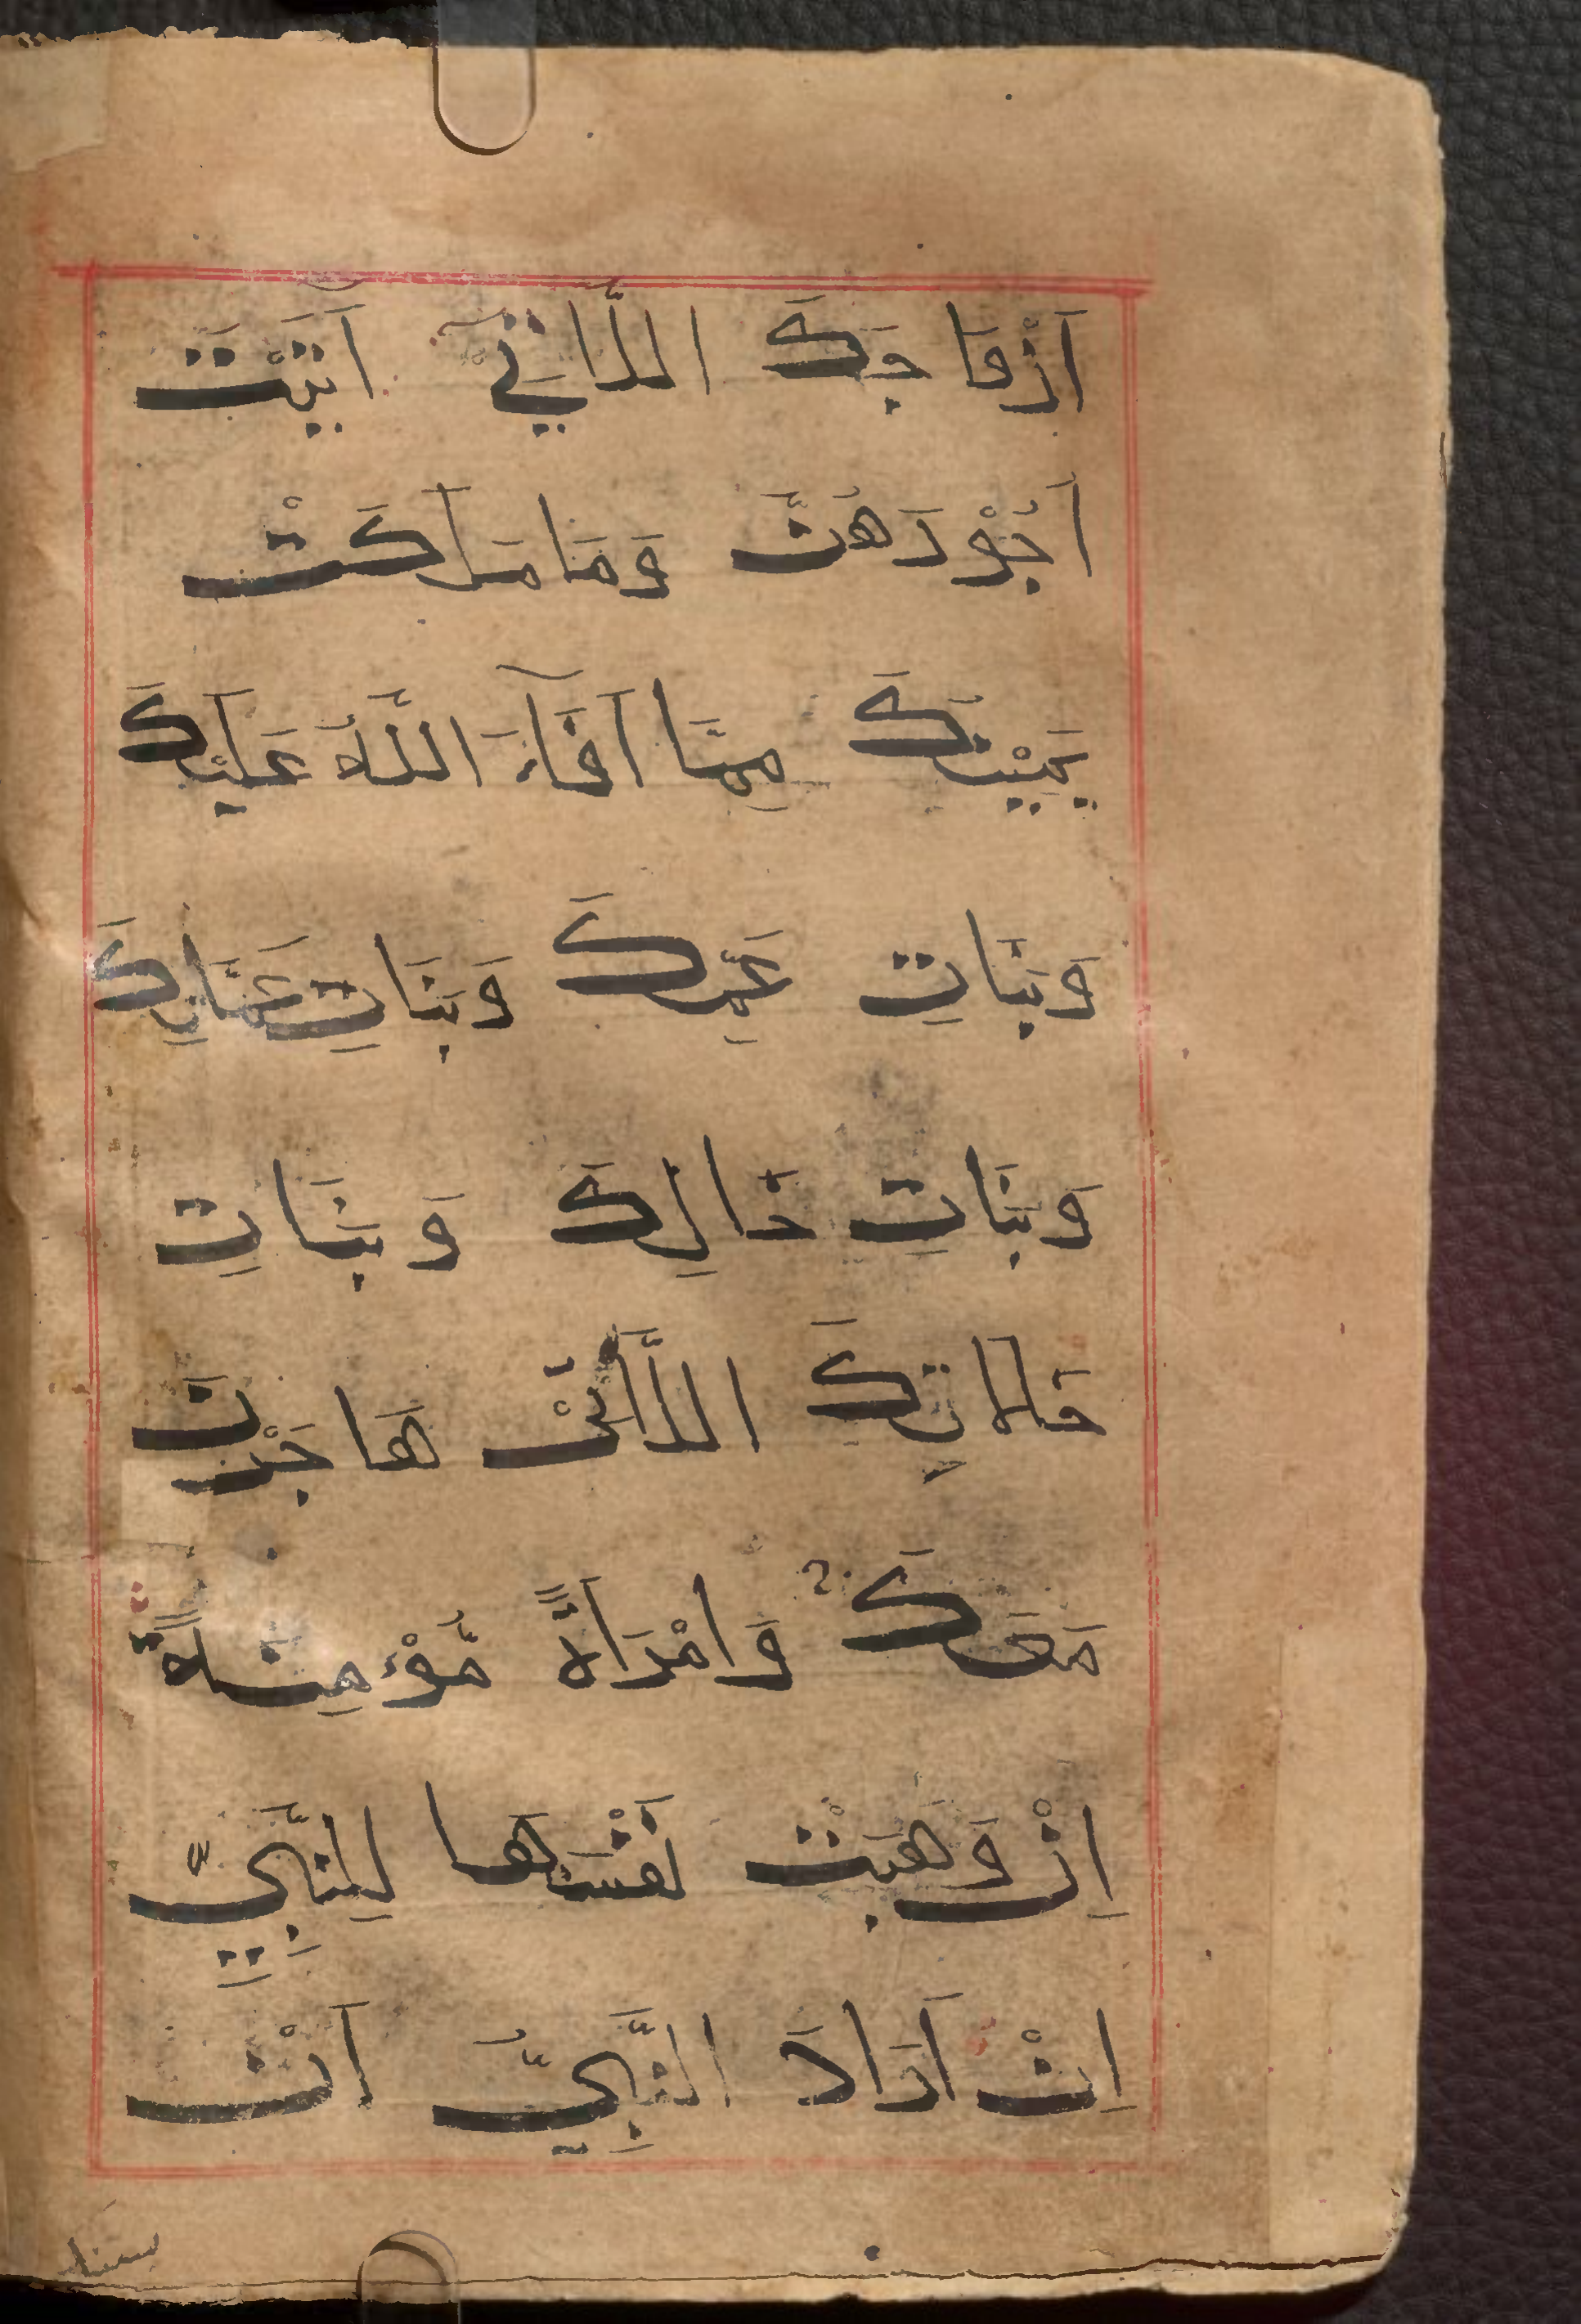 اَزْوَاجَكَ اللَّاتِيْٓ اٰتَيْتَ
اُجُوْرَهُنَّ وَمَا مَلَكَتْ
يَمِيْنُكَ مِمَّا اَفَآءَ اللّٰهُ عَلَيْكَ
وَبَنَاتِ عَمِّكَ وَبَنَاتِ عَمَّاتِكَ
وَبَنَاتِ خَالِكَ وَبَنَاتِ
خَالَاتِكَ اللَّاتِيْ هَاجَرْنَ
مَعَكَ وَامْرَاَةً مُّؤْمِنَةً
اِنْ وَهَبَتْ نَفْسَهَا لِلنَّبِيِّ
اِنْ اَرَادَ النَّبِيُّ اَنْ